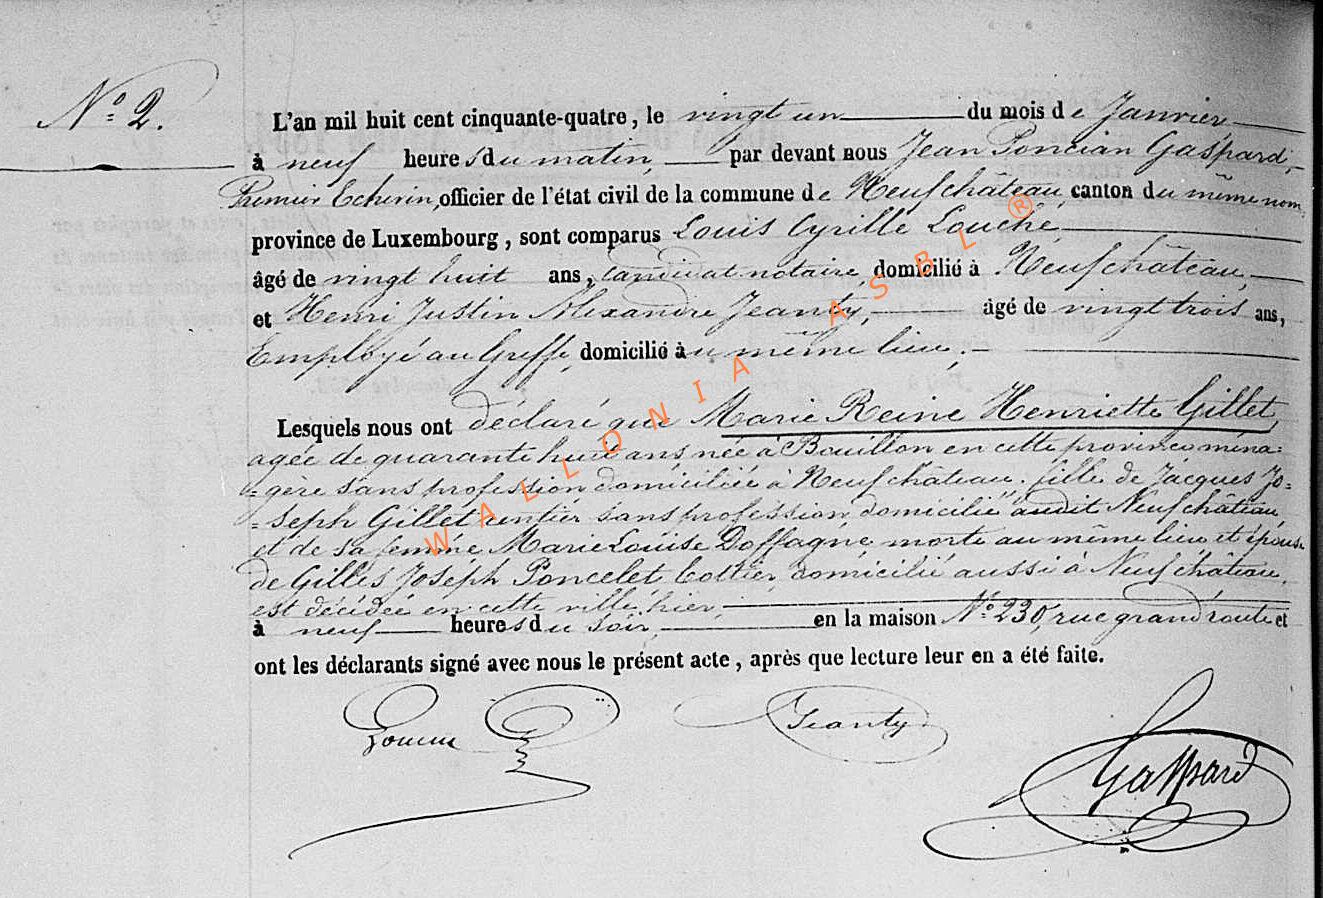 N° 2.
L'an mil huit cent cinquante-quatre, le vingt un du mois de Janvier
à neuf heures du matin, par devant nous Jean Poncian Gaspard,
Premier Echevin, officier de l'état civil de la commune de Neufchâteau, canton du même nom,
province de Luxembourg, sont comparus Louis Cyrille Louche
âgé de vingt huit ans, candidat notaire, domicilié à Neufchâteau,
et Henri Justin Alexandre Jeanty, âgé de vingt trois ans,
Employé au Greffe, domicilié au même lieu.
Lesquels nous ont déclaré que Marie Reine Henriette Gillet,
agée de quarante huit ans née à Bouillon en cette province ména=
=gère sans profession domiciliée à Neufchâteau, fille de Jacques Jo=
=seph Gillet rentier sans profession domicilié audit Neufchâteau
et de sa femme Marie Louise Doffagne, morte au même lieu et épouse
de Gilles Joseph Poncelet domicilié aussi à Neufchâteau,
est décédée en cette ville, hier,
à neuf heures du soir, en la maison N° 230, rue grand route et
ont les déclarants signé avec nous le présent acte, après que lecture leur en a été faite.
Jeanty
Gaspard
WALLONIA ASBL ®